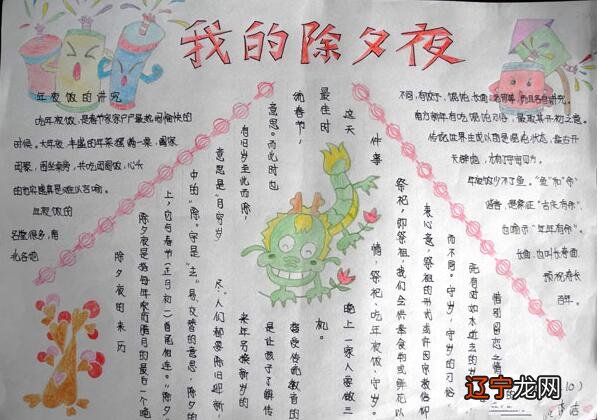 我的除夕夜
年夜饭的讲究
吃年夜饭，是春节家家户户最热闹愉快的
时候。大年夜，丰盛的年菜摆满一桌，阖家
团聚，围坐桌旁，共吃团圆饭，心头
的充实感真是难以言喻。
年夜饭的
名堂很多，南
北各地
不同，有饺子、馄饨、长面、元宵等，而且各有讲究。
传说世界生成以前是混沌状态，盘古开
天辟地，才有了宇宙四方。
年夜饭少不了鱼。"鱼"和"余"
谐音，是象征"吉庆有余"，
也喻示"年年有余"。
长面，也叫长寿面。
预祝寿长
百年。
除夕夜的来历
除夕夜是指每年农历腊月的最后一个晚
上，它与春节（正月初一）首尾相连。"除夕"
中的"除"字是"去、易、交替"的意思，除夕的
意思是"月穷岁尽"，人们都要除旧迎新，
有旧岁至此而除，来年另换新岁的
意思。而此时也是让孩子了解传
统春节，接受传统教育的
最佳时机。
这天晚上一家人要做三
件事情，祭祀、吃年夜饭、守岁。
祭祀，即祭祖，我们会供素食荤或鲜花以
表心意，祭祖的形式或许因宗教信仰
而不同。守岁，守岁的习俗
既有对如水逝去的岁
惜别留恋之情
辽宁龙网